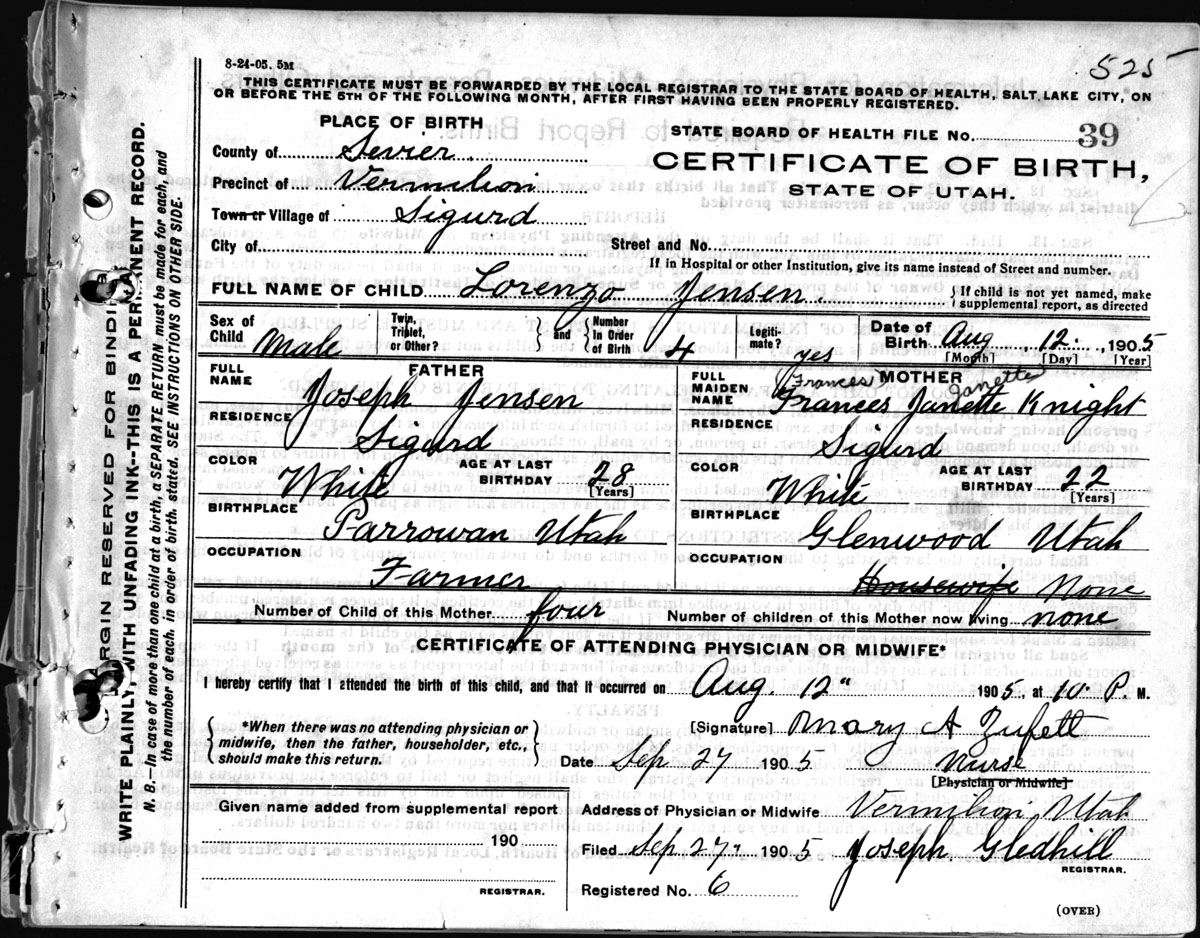 525
8-24-05. 5M
THIS CERTIFICATE MUST BE FORWARDED BY THE LOCAL REGISTRAR TO THE STATE BOARD OF HEALTH, SALT LAKE CITY, ON
OR BEFORE THE 5TH OF THE FOLLOWING MONTH, AFTER FIRST HAVING BEEN PROPERLY REGISTERED.
PLACE OF BIRTH
STATE BOARD OF HEALTH FILE No. 39
County of Sevier
CERTIFICATE OF BIRTH,
Precinct of Vermilion
STATE OF UTAH.
Town or Village of Sigurd
City of Street and No.
If in Hospital or other Institution, give its name instead of Street and number.
FULL NAME OF CHILD Lorenzo Jensen { If child is not yet named, make
supplemental report, as directed
Sex of Child Male Twin, Triplet, or Other? } and { Number In Order of Birth 4 Legiti-mate? yes Date of Birth Aug 12 1905
[Month] [Day] [Year]
FATHER
FULL NAME Joseph Jensen
RESIDENCE Sigurd
COLOR White AGE AT LAST BIRTHDAY 28 [Years]
BIRTHPLACE Parrowan Utah
OCCUPATION Farmer
MOTHER
Frances Janette
FULL MAIDEN NAME Frances Janette Knight
RESIDENCE Sigurd
COLOR White AGE AT LAST BIRTHDAY 22 [Years]
BIRTHPLACE Glenwood Utah
OCCUPATION Housewife None
Number of Child of this Mother four Number of children of this Mother now living none
CERTIFICATE OF ATTENDING PHYSICIAN OR MIDWIFE*
I hereby certify that I attended the birth of this child, and that it occurred on Aug. 12" 1905, at 10 P. M.
{ *When there was no attending physician or
midwife, then the father, householder, etc.,
should make this return. }
[Signature] Mary A
Date Sep 27 1905 Nurse
[Physician or Midwife]
Given name added from supplemental report
190
REGISTRAR.
Address of Physician or Midwife Vermilion, Utah
Filed Sep 27 1905 Joseph Gledhill
REGISTRAR.
Registered No. 6
(OVER)
MARGIN RESERVED FOR BINDING
WRITE PLAINLY, WITH UNFADING INK--THIS IS A PERMANENT RECORD.
N. B.—In case of more than one child at a birth, a SEPARATE RETURN must be made for each, and
the number of each, in order of birth, stated. SEE INSTRUCTIONS ON OTHER SIDE.